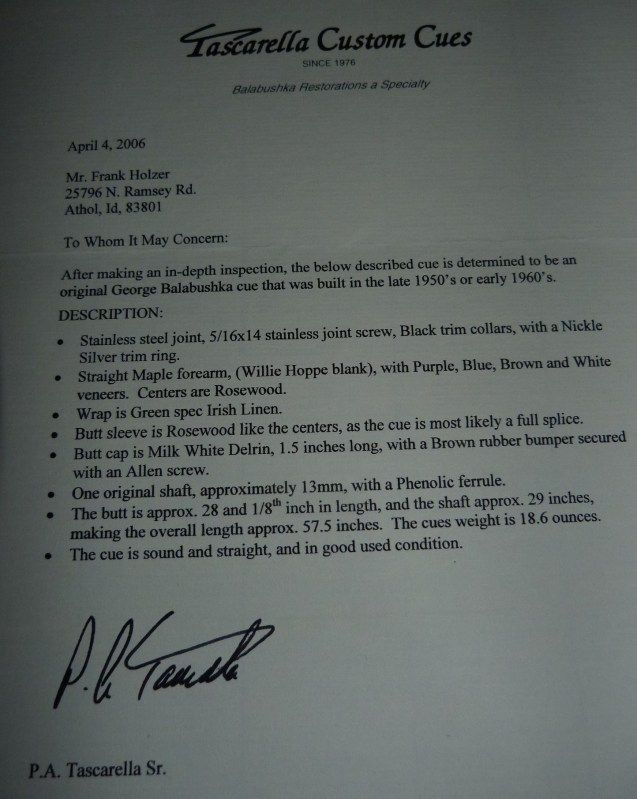 Tascarella Custom Cues
SINCE 1976
Balabushka Restorations a Specialty
April 4, 2006
Mr. Frank Holzer
25796 N. Ramsey Rd.
Athol, Id, 83801
To Whom It May Concern:
After making an in-depth inspection, the below described cue is determined to be an
original George Balabushka cue that was built in the late 1950's or early 1960's.
DESCRIPTION:
• Stainless steel joint, 5/16x14 stainless joint screw, Black trim collars, with a Nickle
Silver trim ring.
• Straight Maple forearm, (Willie Hoppe blank), with Purple, Blue, Brown and White
veneers. Centers are Rosewood.
• Wrap is Green spec Irish Linen.
• Butt sleeve is Rosewood like the centers, as the cue is most likely a full splice.
• Butt cap is Milk White Delrin, 1.5 inches long, with a Brown rubber bumper secured
with an Allen screw.
• One original shaft, approximately 13mm, with a Phenolic ferrule.
• The butt is approx. 28 and 1/8th inch in length, and the shaft approx. 29 inches,
making the overall length approx. 57.5 inches. The cues weight is 18.6 ounces.
• The cue is sound and straight, and in good used condition.
P. A. Tascarella
P.A. Tascarella Sr.